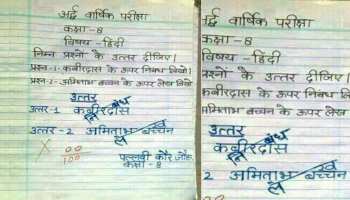 अर्द्ध वार्षिक परीक्षा
कक्षा - 8
विषय - हिंदी
निम्न प्रश्नों के उत्तर दीजिए।
प्रश्न-1- कबीरदास के ऊपर निबंध लिखो।
प्रश्न-2- अमिताभ बच्चन के ऊपर लेख लिखो
उत्तर
उत्तर-1 कबीरदास
उत्तर-2 अमिताभ बच्चन
X 00
100
पल्लवी कौर
कक्षा - 8
र्द्ध वार्षिक परीक्षा
कक्षा - 8
विषय - हिंदी
प्रश्नों के उत्तर दीजिए।
कबीरदास के ऊपर निबंध लि
अमिताभ बच्चन के ऊपर लेख
उत्तर
कबीरदास
2 अमिताभ बच्चन